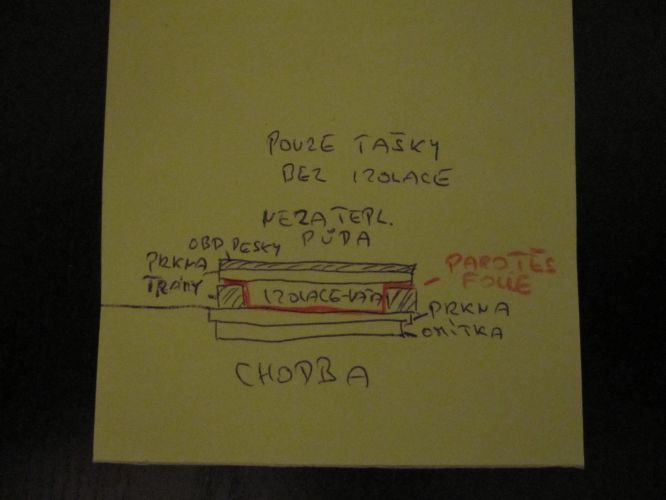 POUZE TAŠKY
BEZ IZOLACE
NEZATEPL.
PŮDA
OBD DESKY
PRKNA
TRÁMY
IZOLACE-VATA
PAROTĚS
FOLIE
PRKNA
OMÍTKA
CHODBA